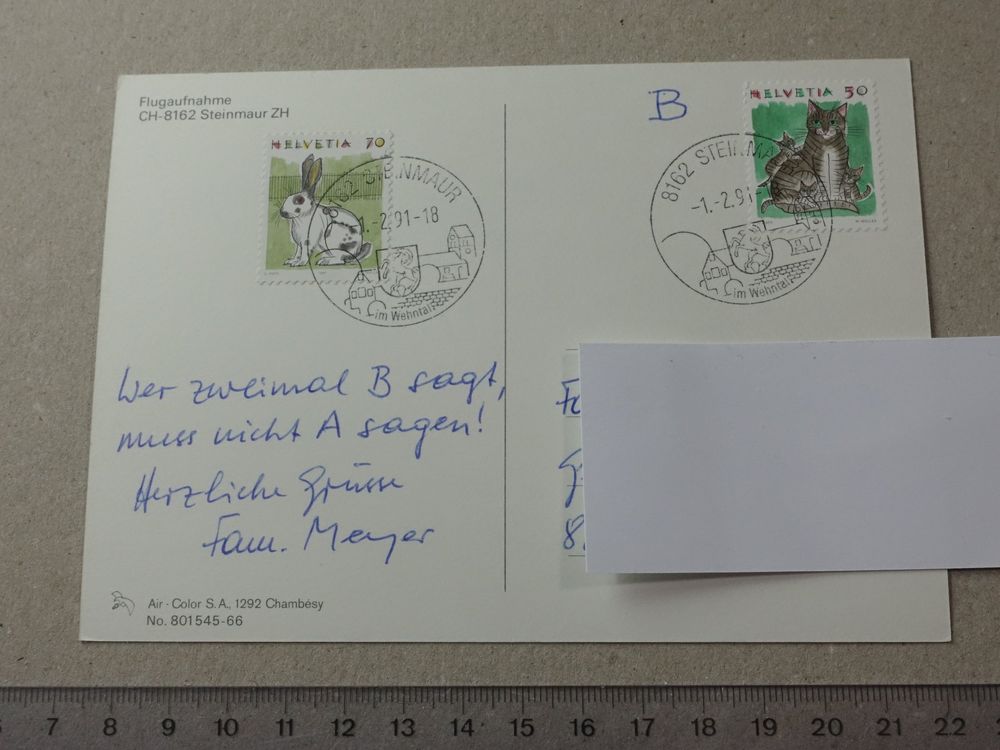 Flugaufnahme
CH-8162 Steinmaur ZH
HELVETIA 70
8162 STEINMAUR
-1.-2.91-18
im Wehntal
B
HELVETIA 50
8162 STEINMA
-1.-2.91-
im Wehntal
Wer zweimal B sagt,
muss nicht A sagen!
Herzliche Grüsse
Fam. Meyer
Air · Color S.A., 1292 Chambésy
No. 801545-66
8
6 7 8 9 10 11 12 13 14 15 16 17 18 19 20 21 22